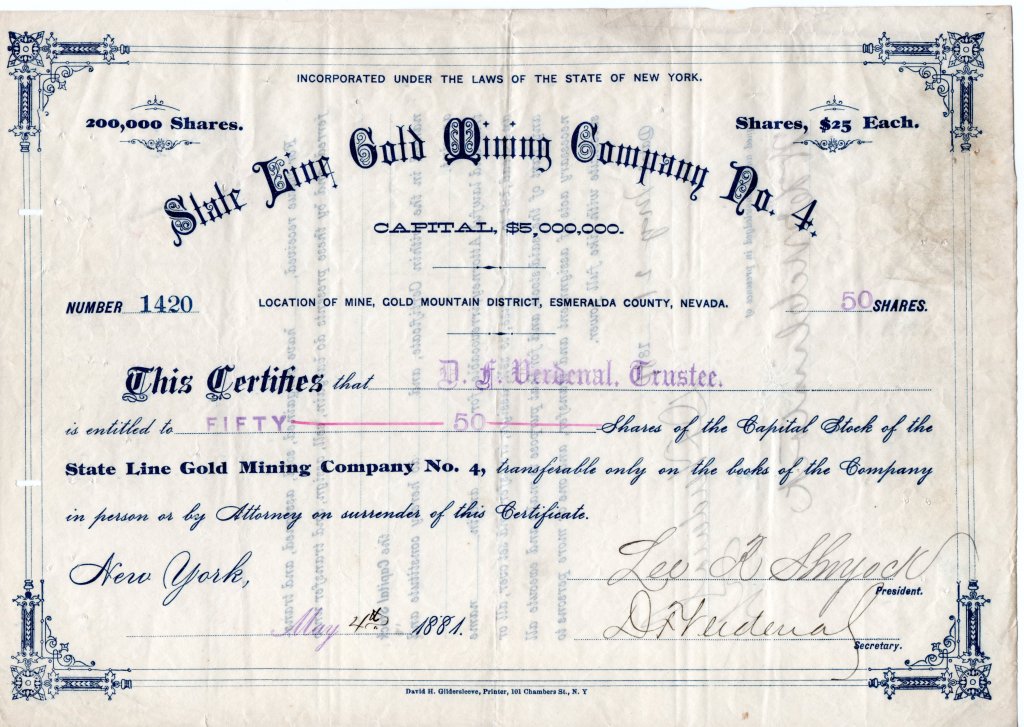 INCORPORATED UNDER THE LAWS OF THE STATE OF NEW YORK.
200,000 Shares.
Shares, $25 Each.
State Line Gold Mining Company No. 4.
CAPITAL, $5,000,000.
NUMBER 1420
LOCATION OF MINE, GOLD MOUNTAIN DISTRICT, ESMERALDA COUNTY, NEVADA.
50 SHARES.
This Certifies that D. F. Verdenal, Trustee.
is entitled to FIFTY 50 Shares of the Capital Stock of the
State Line Gold Mining Company No. 4, transferable only on the books of the Company
in person or by Attorney on surrender of this Certificate.
New York,
Lee R Shryock
President.
May 4th 1881.
D F Verdenal
Secretary.
David H. Gildersleeve, Printer, 101 Chambers St., N. Y